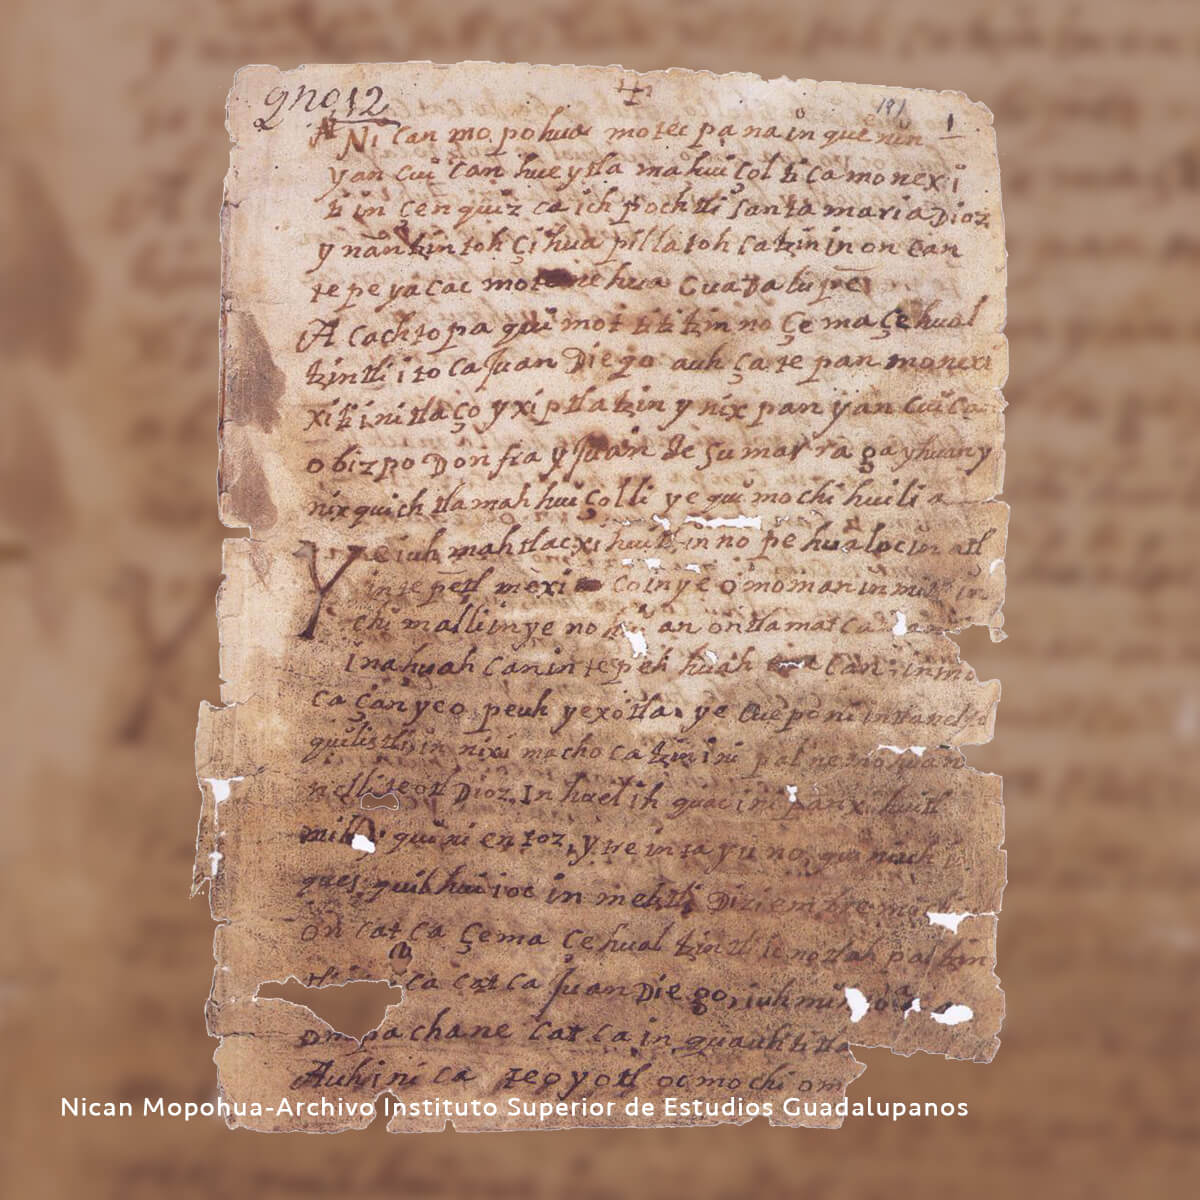 qno 12
191 1
Ni can mo pohua motec pa na in que nin
yan cui can hue ytla ma hui çol ti ca mo nex i
ti in çen quiz ca ich pochtli santa maria Dioz
y nantzin toh çi hua pilla toh ca tzin in on can
te pe ya cac mo te ne hua Guadalupe
A cach to pa qui mot ti ti tzin no çe ma çe hual
tzintli i to ca Juan Diego auh ça te pan mo nexi
xi ti ini tla ço y xi ptla tzin y nix pan yan cui can
o biz po Don fra y Juan de sumar ra ga yhuan y
nix quich tla mah hui çolli ye qui mo chi hui li a
Y e iuh mah tlac xi huitl in no pe hua loc in atl
in te petl mexi co in ye omoman in mitl in
chi malli in ye no an ontla mat ca
i na huah can in te peh huah can in mo
ca çan ye o peuh ye xo tla ye cue po ni in tla nel to
quilistli in nixi macho ca tzin ini pal ne mo huan
nelli teotl Dioz In huel ih quac in i pan xi huitl
mill y qui ni en toz, y tre in ta y u no, qui niuh
ques quilhui i oc in metztli Diziembre
on cat ca çe ma çe hual tzintli ic no tlah pal tzin
ca cat ca Juan Diego iuh
om pa chane cat ca in quauhtitla
Auh i ni ca teo yotl oc mo chi om
Nican Mopohua-Archivo Instituto Superior de Estudios Guadalupanos